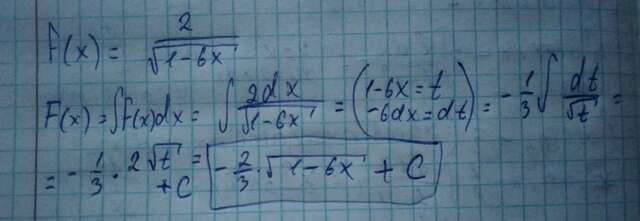 f(x) = 2/√(1-6x)
F(x) = ∫f(x)dx = ∫ 2dx/√(1-6x) = (1-6x = t
-6dx = dt) = -1/3 ∫ dt/√t =
= -1/3 · 2√t + C = -2/3 · √(1-6x) + C